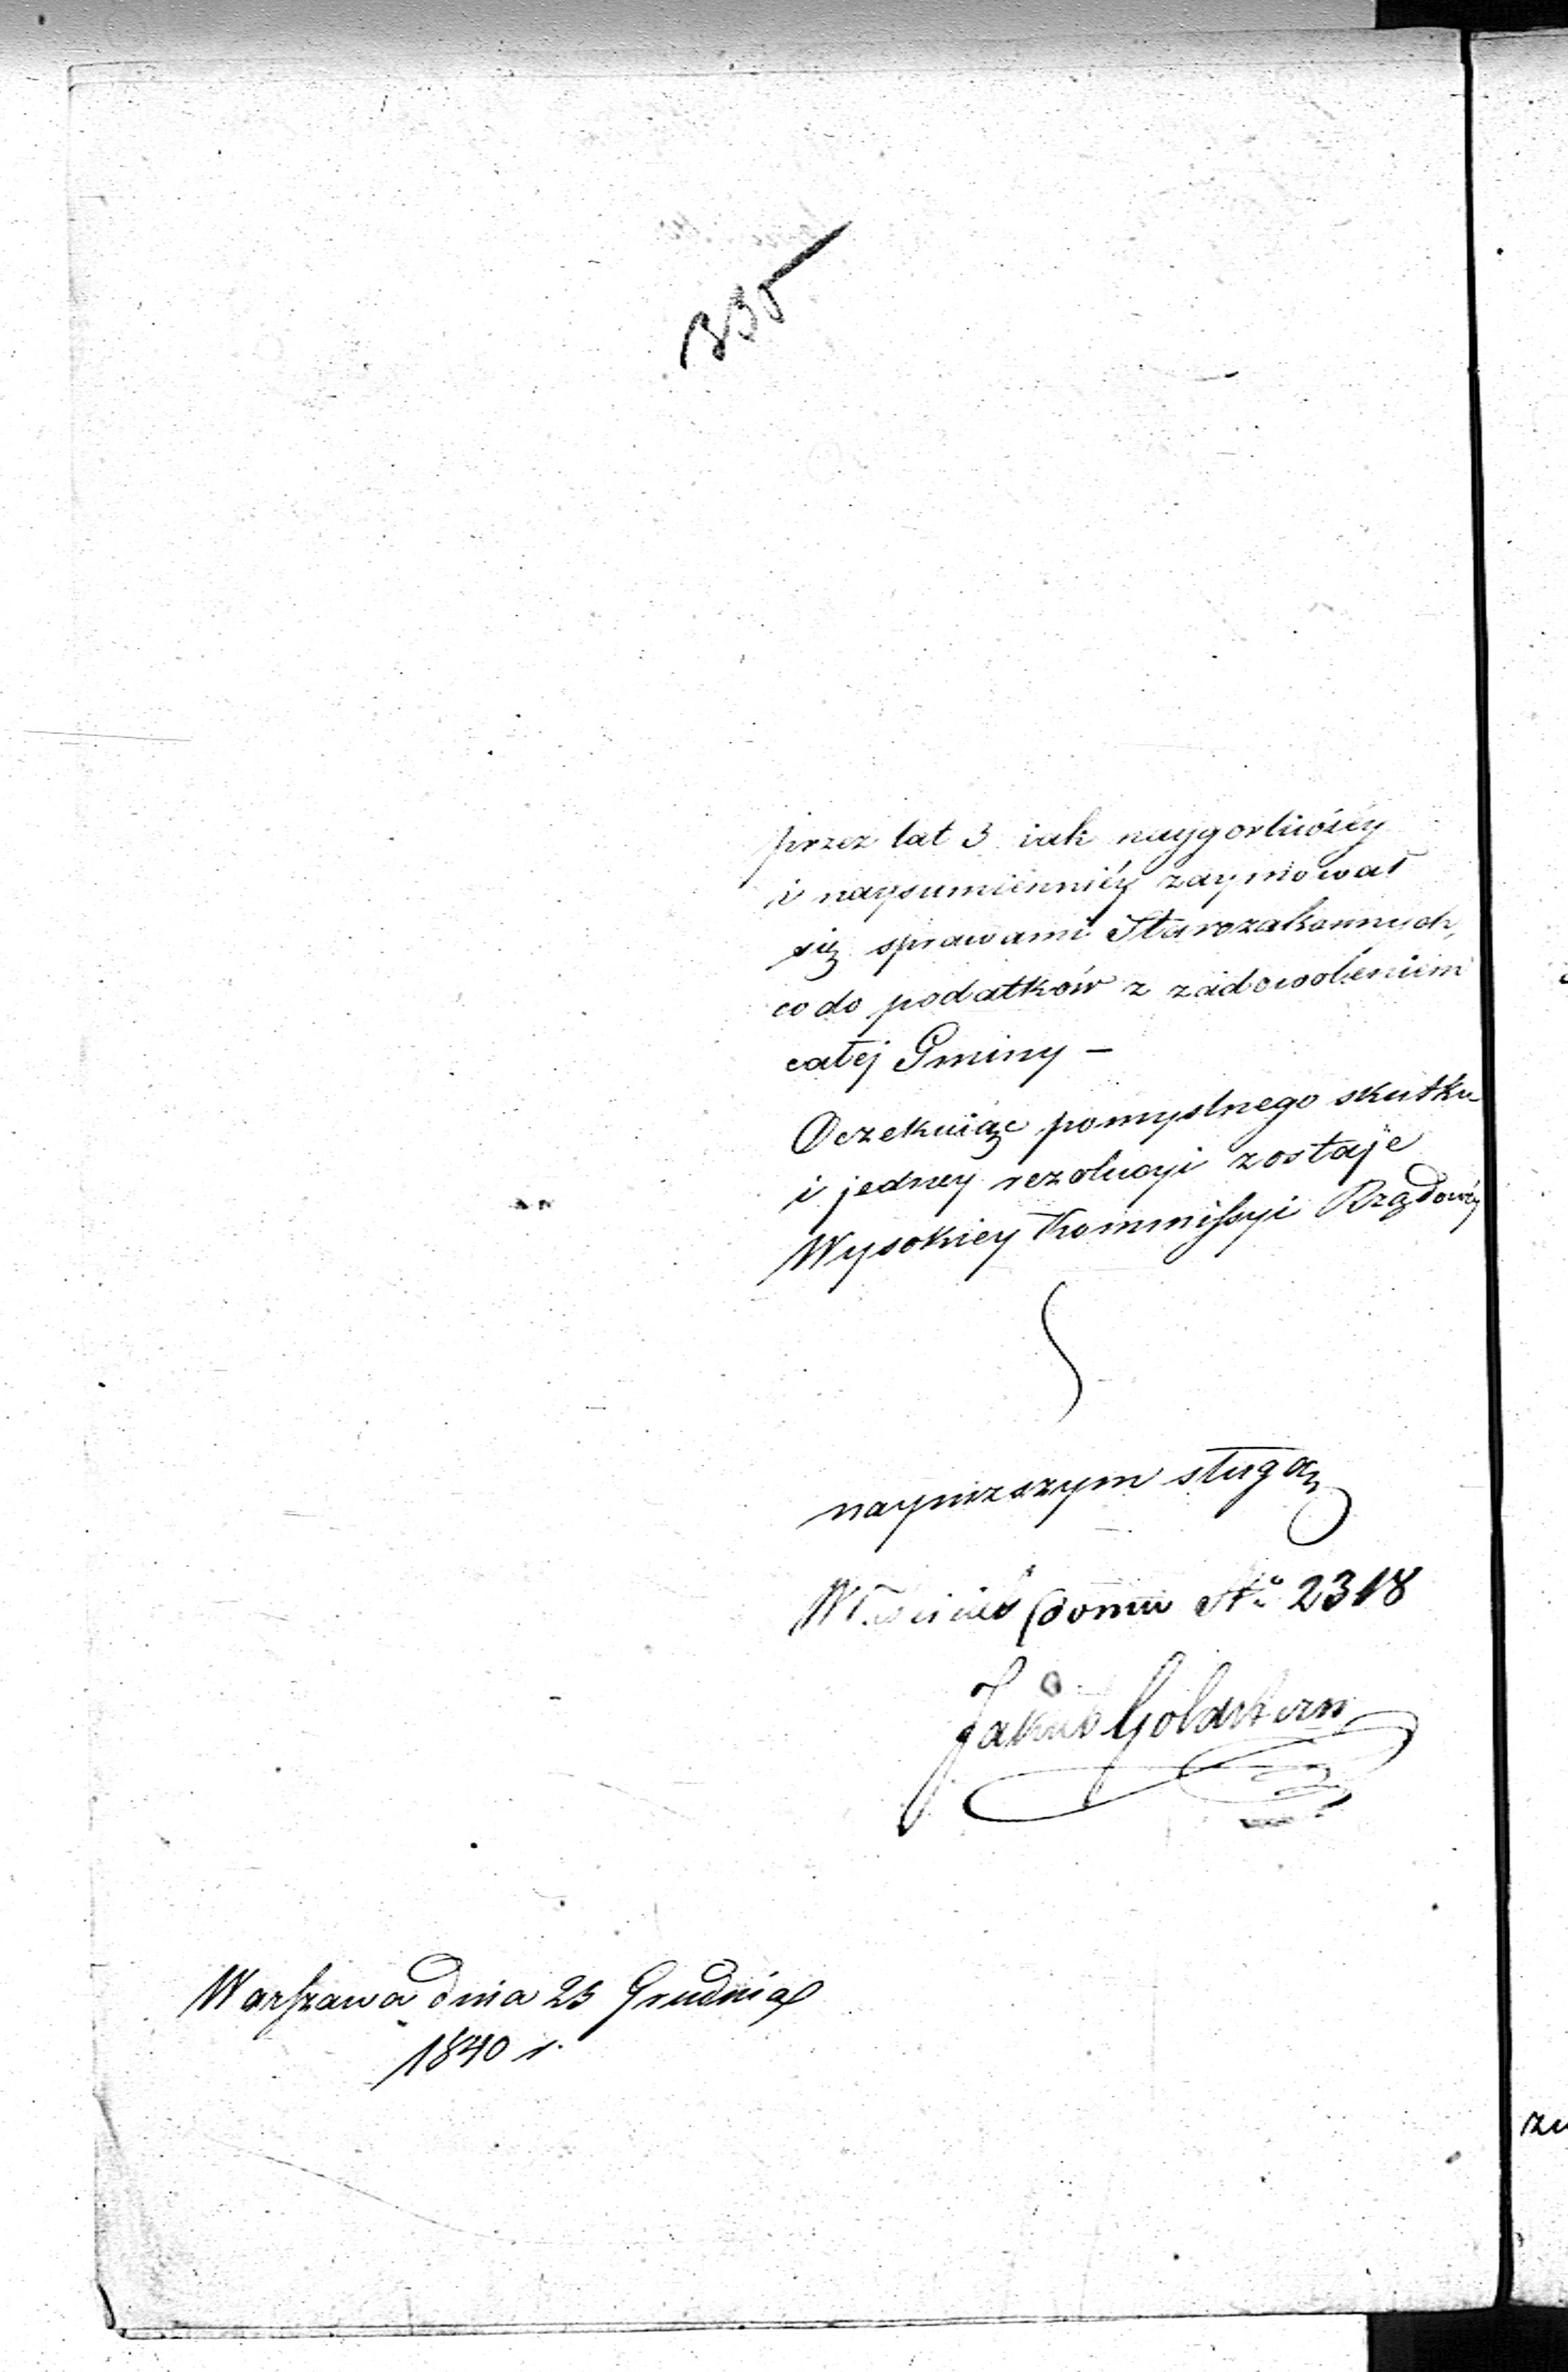 335
przez lat 3 iak naygorliwiéy
i naysumienniéy zaymował
się sprawami Starozakonnych,
co do podatków z zadowoleniem
całéj Gminy –
Oczekuiąc pomyslnego skutku
i jedney rezolucyi zostaje
Wysokiey Kommissyi Rządowéy
nayniższym sługą
Właściciel domu No 2318
Jakub Goldstern
Warszawa dnia 25 Grudnia
1840 r.